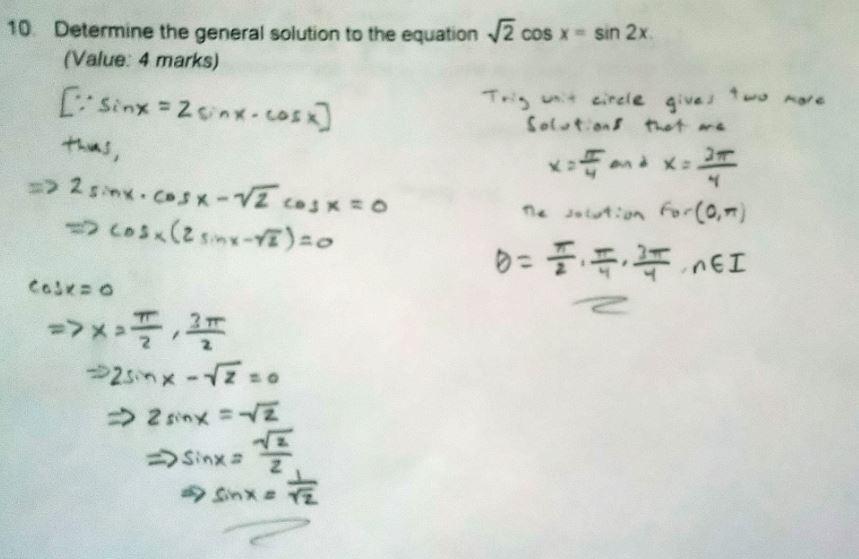 10. Determine the general solution to the equation √2 cos x = sin 2x.
(Value: 4 marks)
[∵ sinx = 2 sinx · cosx]
thus,
=> 2 sinx · cosx - √2 cosx = 0
=> cosx(2 sinx - √2) = 0
cosx = 0
=> x = π/2, 3π/2
=> 2 sinx - √2 = 0
=> 2 sinx = √2
=> sinx = √2/2
=> sinx = 1/√2
Trig unit circle gives two more
solutions that are
x = π/4 and x = 3π/4
The solution for (0, π)
θ = π/2, π/4, 3π/4, n∈I